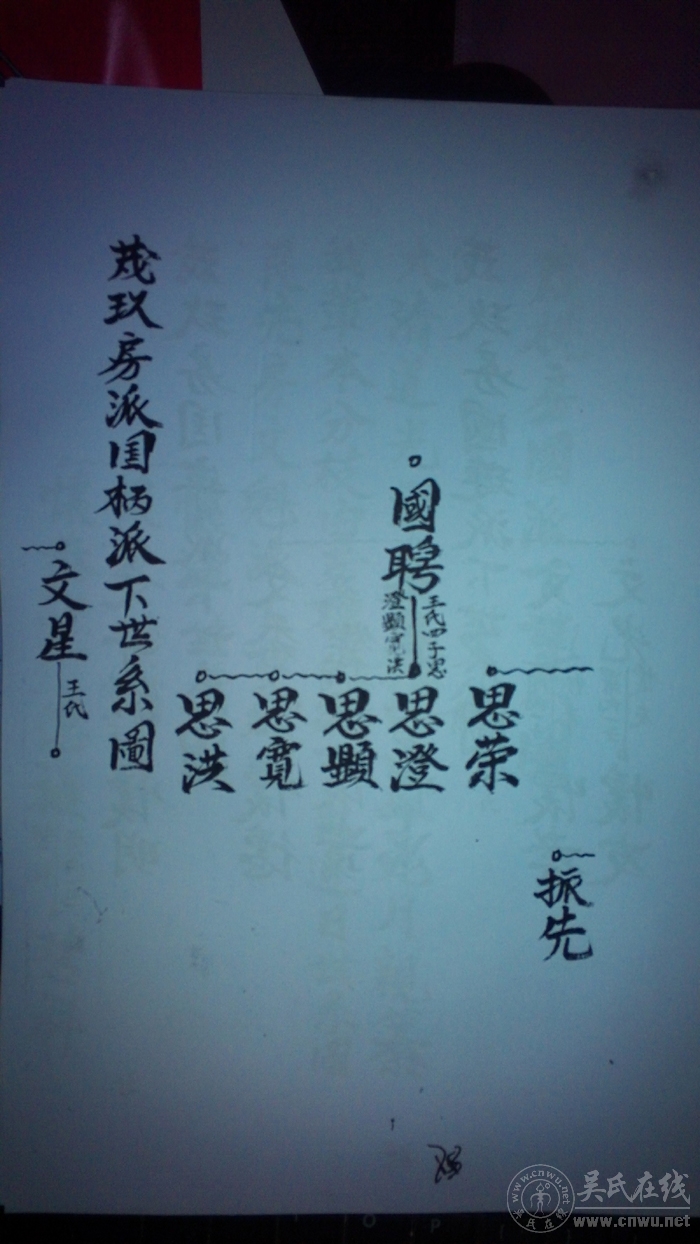 振先
思荣
國聘
王氏四子思
澄顯寬洪
思澄
思顯
思寬
思洪
茂玖房派国柄派下世系圖
文星
王氏
吴氏在线
www.cnwu.net